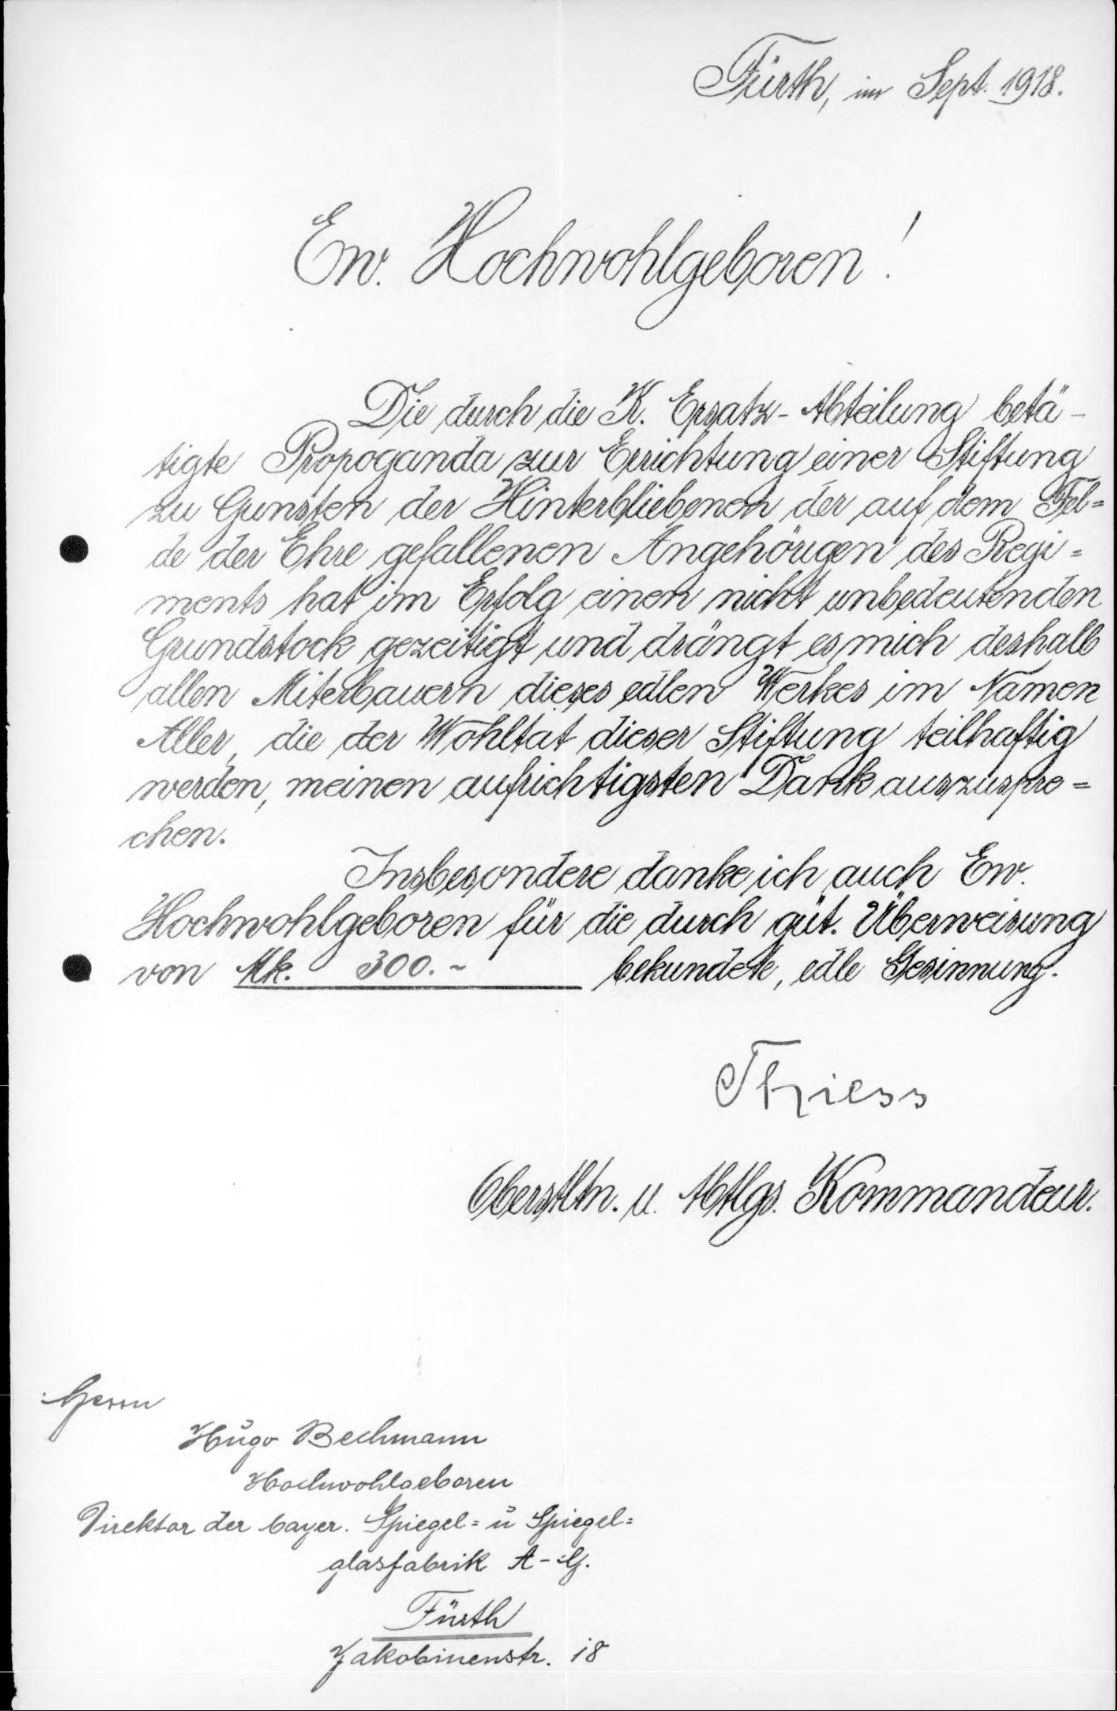 Fürth, im Sept. 1918.
Ew. Hochwohlgeboren!
Die durch die K. Ersatz-Abteilung betä-
tigte Propoganda zur Errichtung einer Stiftung
zu Gunsten der Hinterbliebenen der auf dem Fel=
de der Ehre gefallenen Angehörigen des Regi=
ments hat im Erfolg einen nicht unbedeutenden
Grundstock gezeitigt und drängt es mich deshalb
allen Miterbauern dieses edlen Werkes im Namen
Aller, die der Wohltat dieser Stiftung teilhaftig
werden, meinen aufrichtigsten Dank auszuspre=
chen.
Insbesondere danke ich auch Ew.
Hochwohlgeboren für die durch güt. Überweisung
von Mk. 300.- bekundete, edle Gesinnung.
Thiess
Oberstltn. u. Abtlgs. Kommandeur.
Herrn
Hugo Bechmann
Hochwohlgeboren
Direktor der bayer. Spiegel= u Spiegel=
glasfabrik A-G.
Fürth
Jakobinenstr. 18